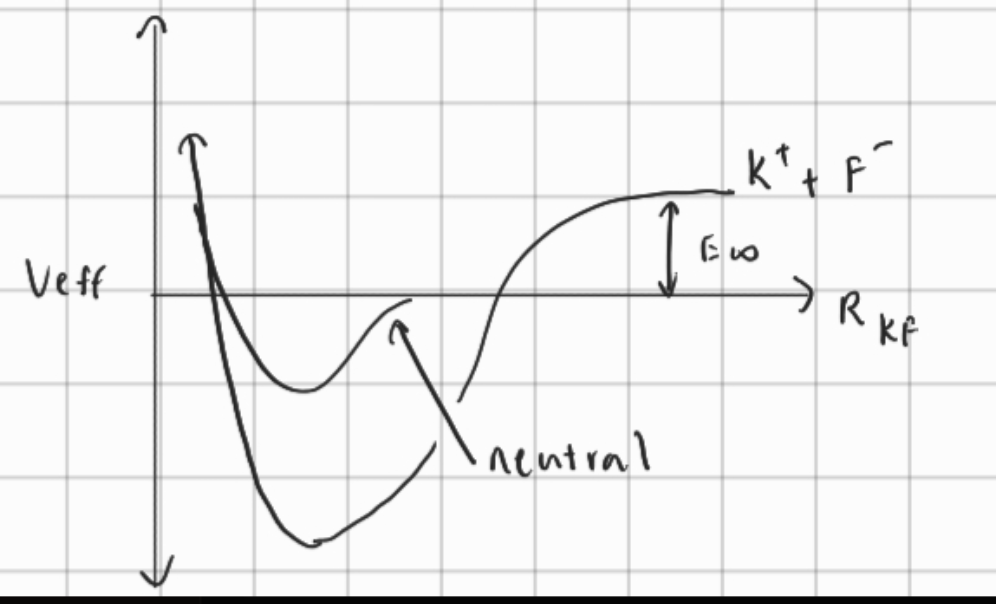 K⁺ + F⁻
E∞
Veff
R_KF
neutral